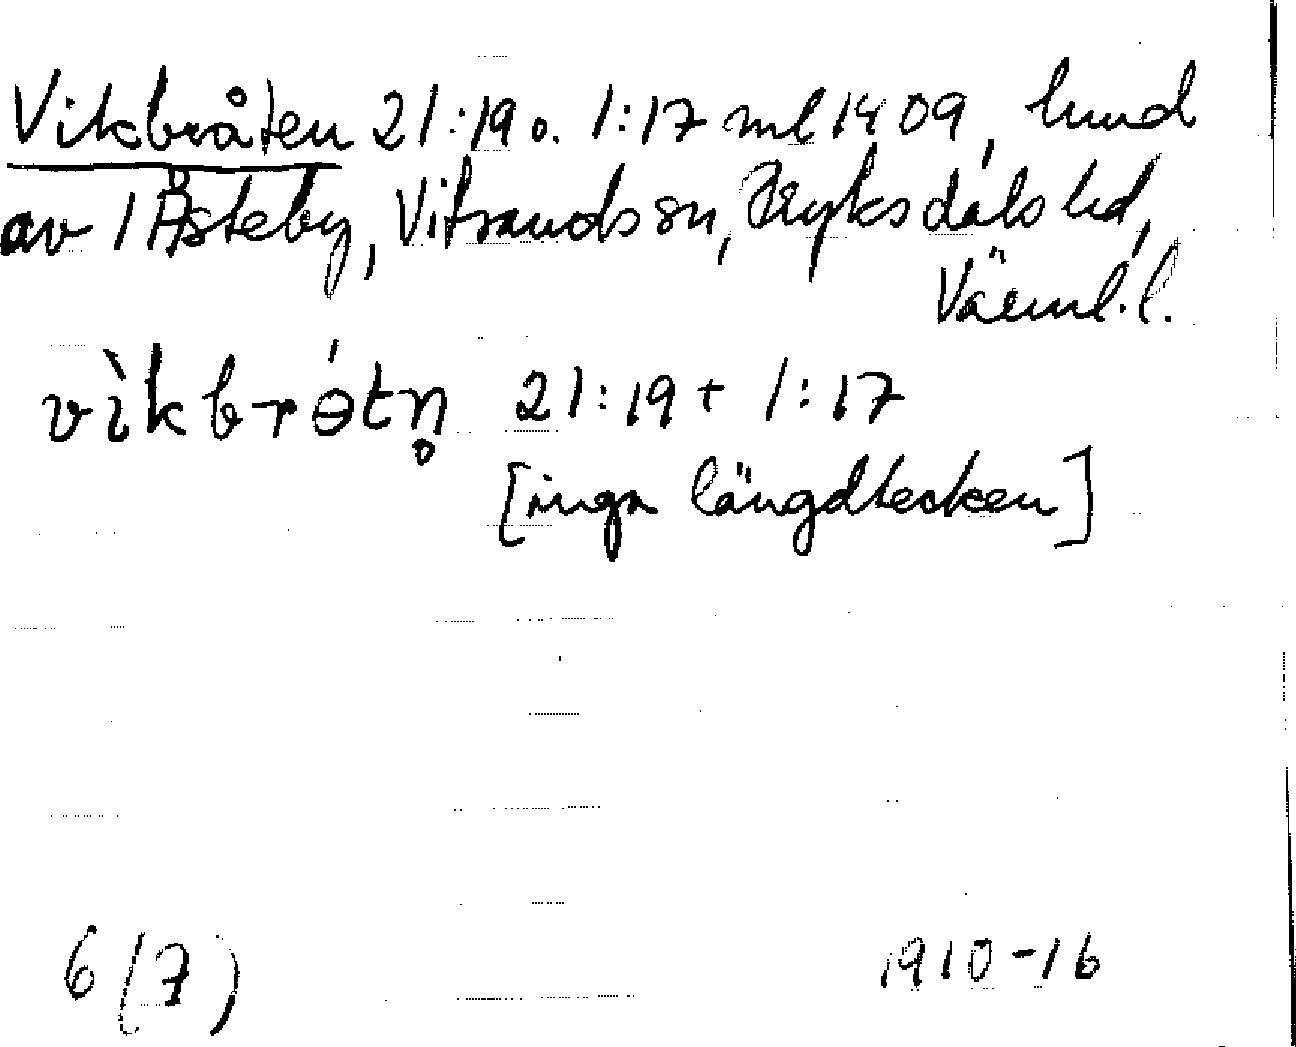 Vikbråten 21:19 o. 1:17 ml 1409, hmd
av 1 Åsteby, Vitsands sn, Fryksdals hd,
Värml. l.
vìkbrɵ́tn̥ 21:19 + 1:17
[inga längdtecken]
6 (7) 1910-16